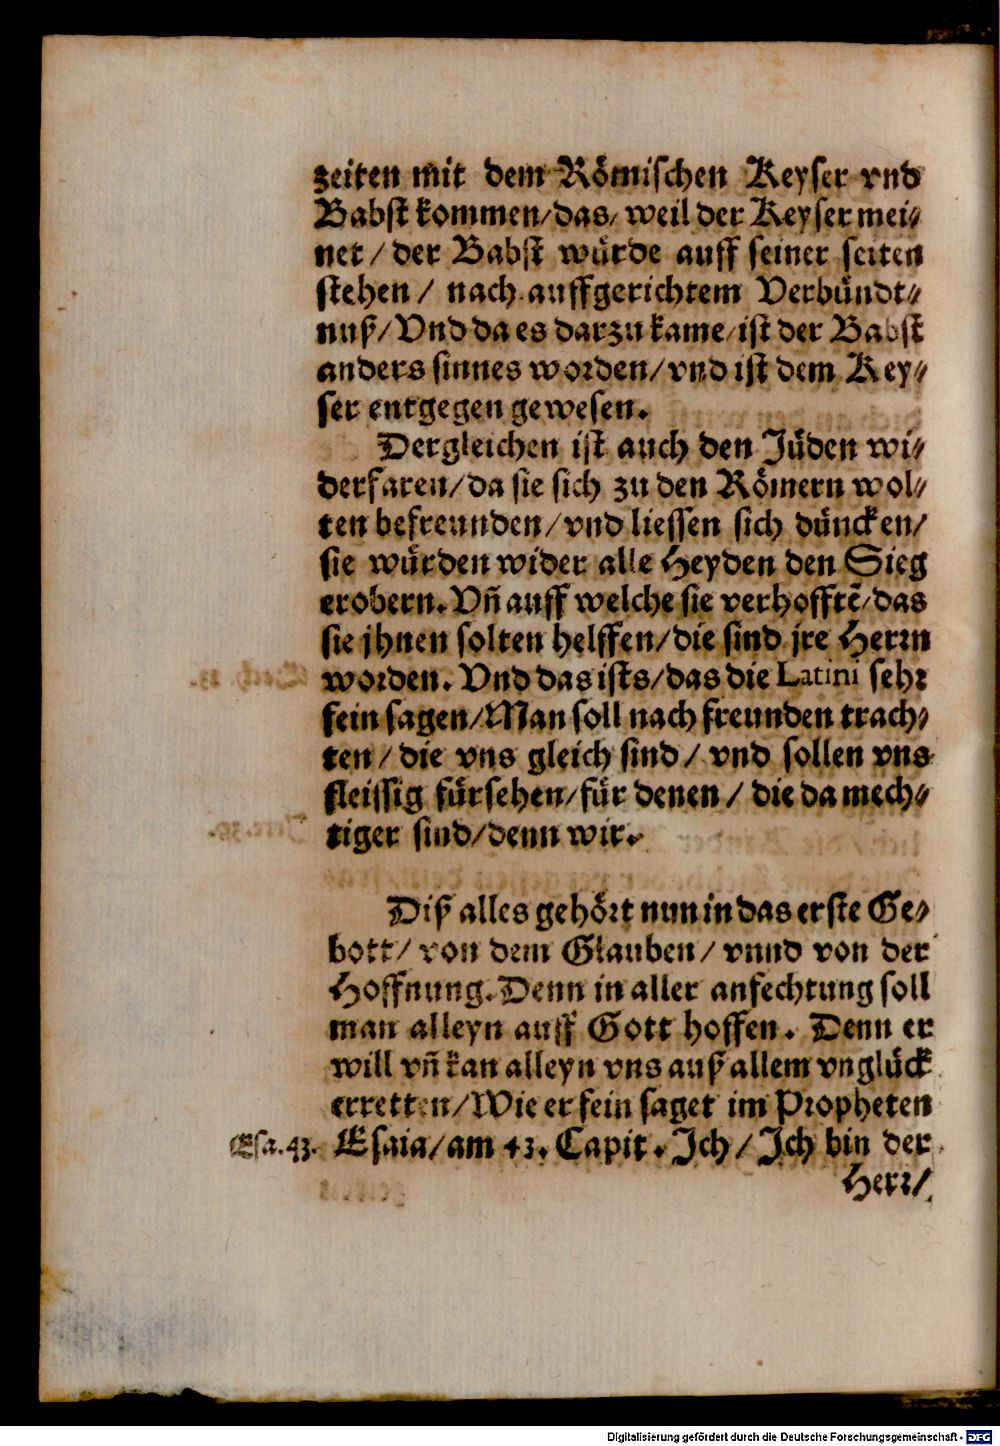 zeiten mit dem Römischen Keyser vnd
Babst kommen/das/ weil der Keyser mei⸗
net / der Babst würde auff seiner seiten
stehen / nach auffgerichtem Verbündt⸗
nuß/Vnd da es darzu kame/ist der Babst
anders sinnes worden/vnd ist dem Key⸗
ser entgegen gewesen.
Dergleichen ist auch den Jüden wi⸗
derfaren/da sie sich zu den Römern wol⸗
ten befreunden/vnd liessen sich düncken/
sie würden wider alle Heyden den Sieg
erobern. Vñ auff welche sie verhofftē/das
sie jhnen solten helffen/die sind jre Herrn
worden. Vnd das ists/das die Latini sehr
fein sagen/Man soll nach freunden trach⸗
ten / die vns gleich sind / vnd sollen vns
fleissig fürsehen/für denen / die da mech⸗
tiger sind/denn wir.
Diß alles gehört nun in das erste Ge⸗
bott/ von dem Glauben / vnnd von der
Hoffnung. Denn in aller anfechtung soll
man alleyn auff Gott hoffen. Denn er
will vñ kan alleyn vns auß allem vnglück
erretten/Wie er fein saget im Propheten
Esa. 43. Esaia/am 43. Capit. Jch / Jch bin der
Herr/
Digitalisierung gefördert durch die Deutsche Forschungsgemeinschaft - DFG